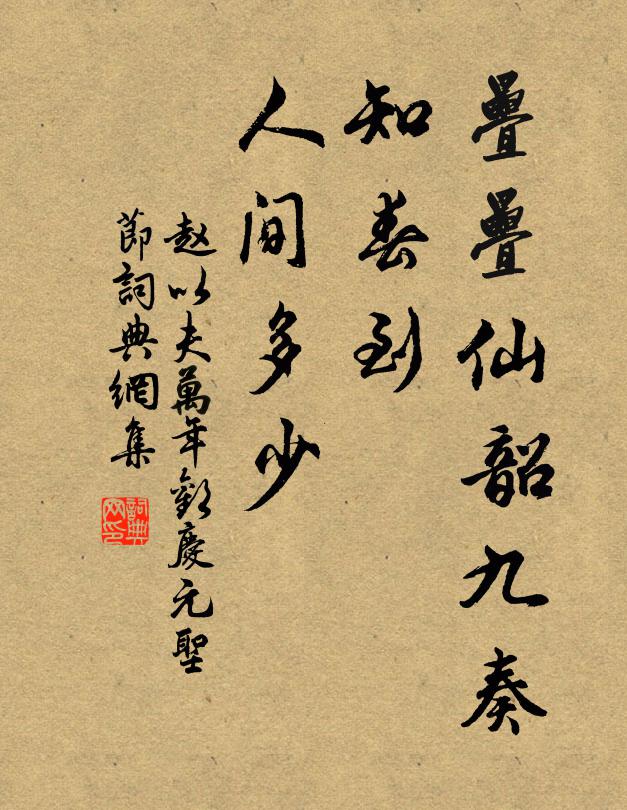 疊疊仙韶九奏
知春到
人間多少
赵以夫萬年歡慶元聖
節詞典網集
詞典网印